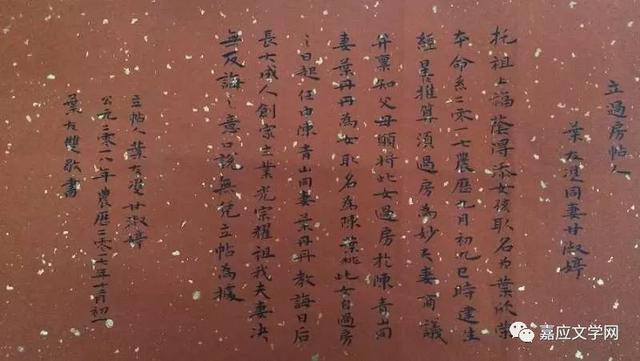 立過房帖人
葉友同妻甘淑婷
托祖上福蔭淂添女孩取名为葉欣
本命系二零一七農歷九月初九巳時建生
經星推算須過房為妙夫妻商議
并禀知父母願将此女過房於陳青山同
妻葉丹丹為女取名為陳葉桃此女自過房
之日起任由陳青山同妻葉丹丹教誨日后
長大成人創家立業光宗耀祖我夫妻决
無反誨之意口説無凭立帖為據
立帖人葉友甘淑婷
公元二零一八年農歷二零一七年十一月初一
葉友雙敬書
嘉应文学网